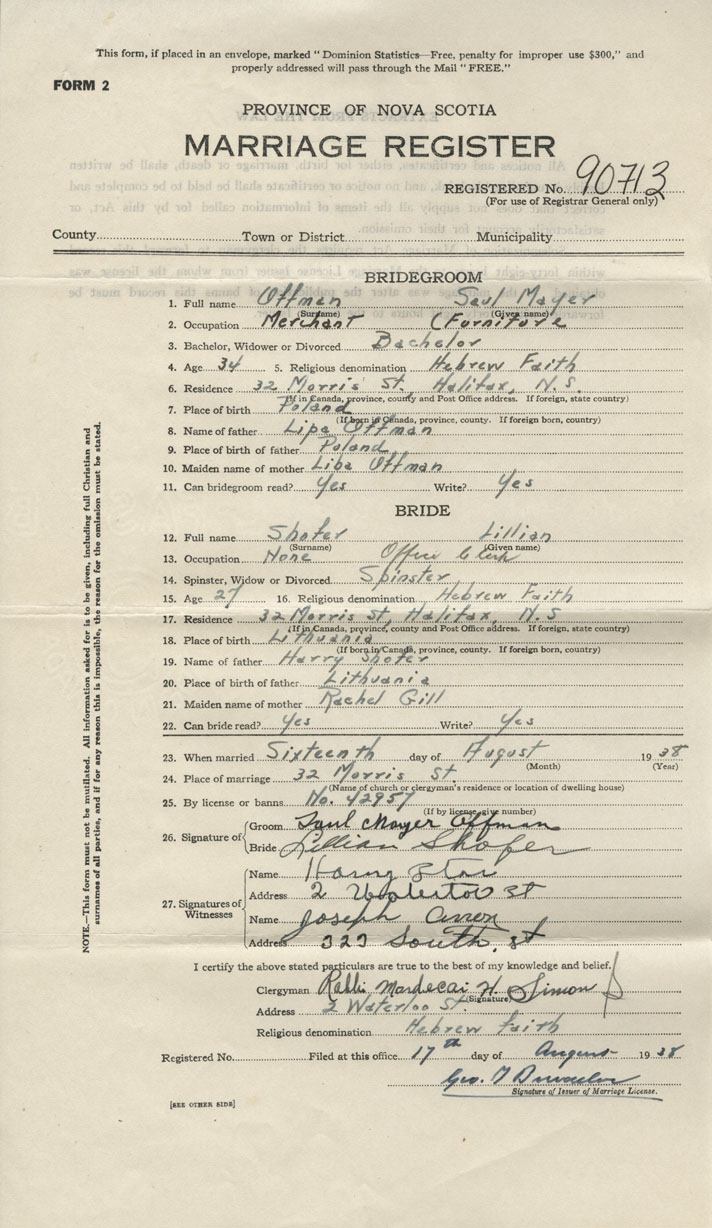 This form, if placed in an envelope, marked "Dominion Statistics—Free, penalty for improper use $300," and
properly addressed will pass through the Mail "FREE."
FORM 2
PROVINCE OF NOVA SCOTIA
MARRIAGE REGISTER
REGISTERED No. 90713
(For use of Registrar General only)
County Town or District Municipality
BRIDEGROOM
1. Full name Offman Saul Mayer
(Surname) (Given name)
2. Occupation Merchant (Furniture
3. Bachelor, Widower or Divorced Bachelor
4. Age 34 5. Religious denomination Hebrew Faith
6. Residence 32 Morris St. Halifax, N.S.
(If in Canada, province, county and Post Office address. If foreign, state country)
7. Place of birth Poland
(If born in Canada, province, county. If foreign born, country)
8. Name of father Lipa Offman
9. Place of birth of father Poland
10. Maiden name of mother Liba Offman
11. Can bridegroom read? Yes Write? Yes
BRIDE
12. Full name Shofer Lillian
(Surname) (Given name)
13. Occupation None Office Clerk
14. Spinster, Widow or Divorced Spinster
15. Age 27 16. Religious denomination Hebrew Faith
17. Residence 32 Morris St, Halifax, N.S
(If in Canada, province, county and Post Office address. If foreign, state country)
18. Place of birth Lithuania
(If born in Canada, province, county. If foreign born, country)
19. Name of father Harry Shofer
20. Place of birth of father Lithuania
21. Maiden name of mother Rachel Gill
22. Can bride read? Yes Write? Yes
23. When married Sixteenth day of August 1938
(Month) (Year)
24. Place of marriage 32 Morris St.
(Name of church or clergyman's residence or location of dwelling house)
25. By license or banns No. 42957
(If by license, give number)
26. Signature of
Groom Saul Mayer Offman
Bride Lillian Shofer
27. Signatures of Witnesses
Name Harry
Address 2 Waterloo St
Name Joseph
Address 323 South St
I certify the above stated particulars are true to the best of my knowledge and belief.
Clergyman Rabbi Mordecai H. Simon
(Signature)
Address 2 Waterloo St.
Religious denomination Hebrew Faith
Registered No. Filed at this office 17th day of August 1938
Geo.
Signature of Issuer of Marriage License.
[SEE OTHER SIDE]
NOTE.—This form must not be mutilated. All information asked for is to be given, including full Christian and
surnames of all parties, and if for any reason this is impossible, the reason for the omission must be stated.